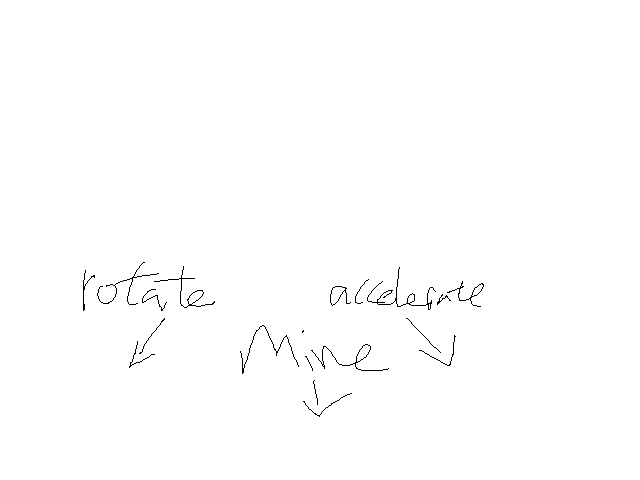 rotate accelerate
Mine